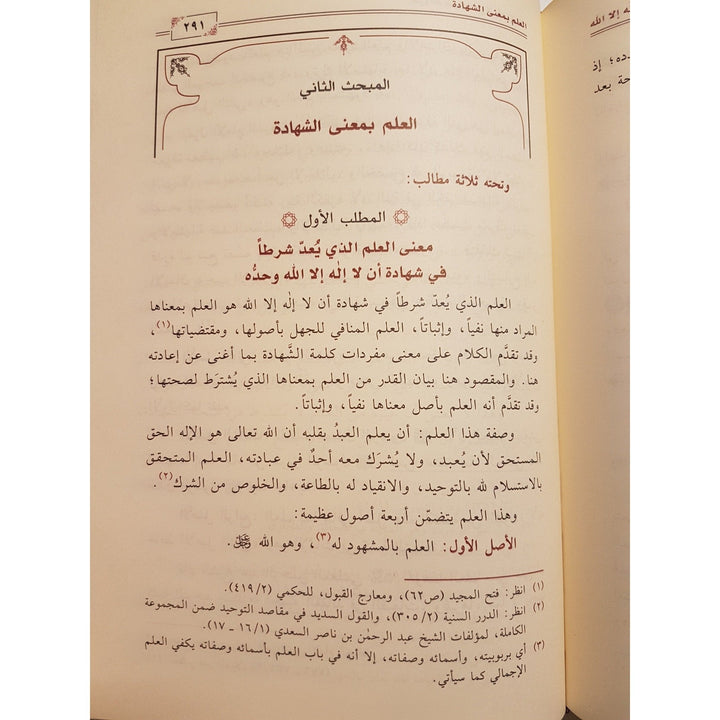 العلم بمعنى الشهادة
٢٩١
المبحث الثاني
العلم بمعنى الشهادة
وتحته ثلاثة مطالب:
المطلب الأول
معنى العلم الذي يُعدّ شرطاً
في شهادة أن لا إلٰه إلا الله وحده
العلم الذي يُعدّ شرطاً في شهادة أن لا إلٰه إلا الله هو العلم بمعناها
المراد منها نفياً، وإثباتاً، العلم المنافي للجهل بأصولها، ومقتضياتها(١)،
وقد تقدَّم الكلام على معنى مفردات كلمة الشَّهادة بما أغنى عن إعادته
هنا. والمقصود هنا بيان القدر من العلم بمعناها الذي يُشترَط لصحتها؛
وقد تقدَّم أنه العلم بأصل معناها نفياً، وإثباتاً.
وصفة هذا العلم: أن يعلم العبدُ بقلبه أن الله تعالى هو الإله الحق
المستحق لأن يُعبد، ولا يُشرَك معه أحدٌ في عبادته، العلم المتحقق
بالاستسلام لله بالتوحيد، والانقياد له بالطاعة، والخلوص من الشرك(٢).
وهذا العلم يتضمّن أربعة أصول عظيمة:
الأصل الأول: العلم بالمشهود له(٣)، وهو الله ﷻ.
(١) انظر: فتح المجيد (ص٦٢)، ومعارج القبول، للحكمي (٤١٩/٢).
(٢) انظر: الدرر السنية (٣٠٥/٢)، والقول السديد في مقاصد التوحيد ضمن المجموعة
الكاملة، لمؤلفات الشيخ عبد الرحمٰن بن ناصر السعدي (١٦/١ - ١٧).
(٣) أي بربوبيته، وأسمائه وصفاته، إلا أنه في باب العلم بأسمائه وصفاته يكفي العلم
الإجمالي كما سيأتي.
إلا الله
إذ
بعد